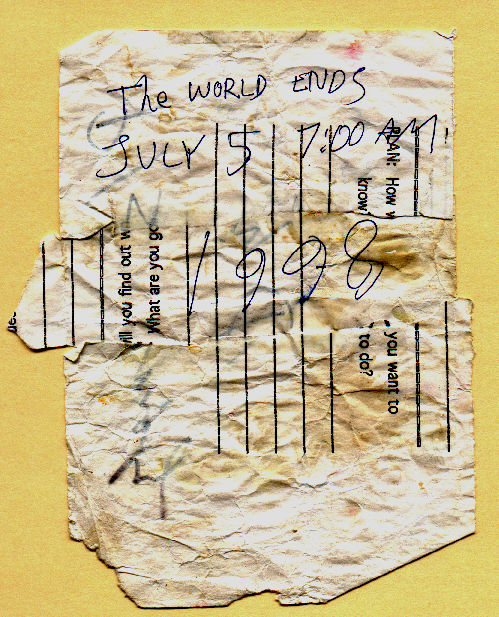 The WORLD ENDS
JULY 5 7:00 AM!
1998
PLAN: How w
know
will you find out w
What are you go
you want to
to do?